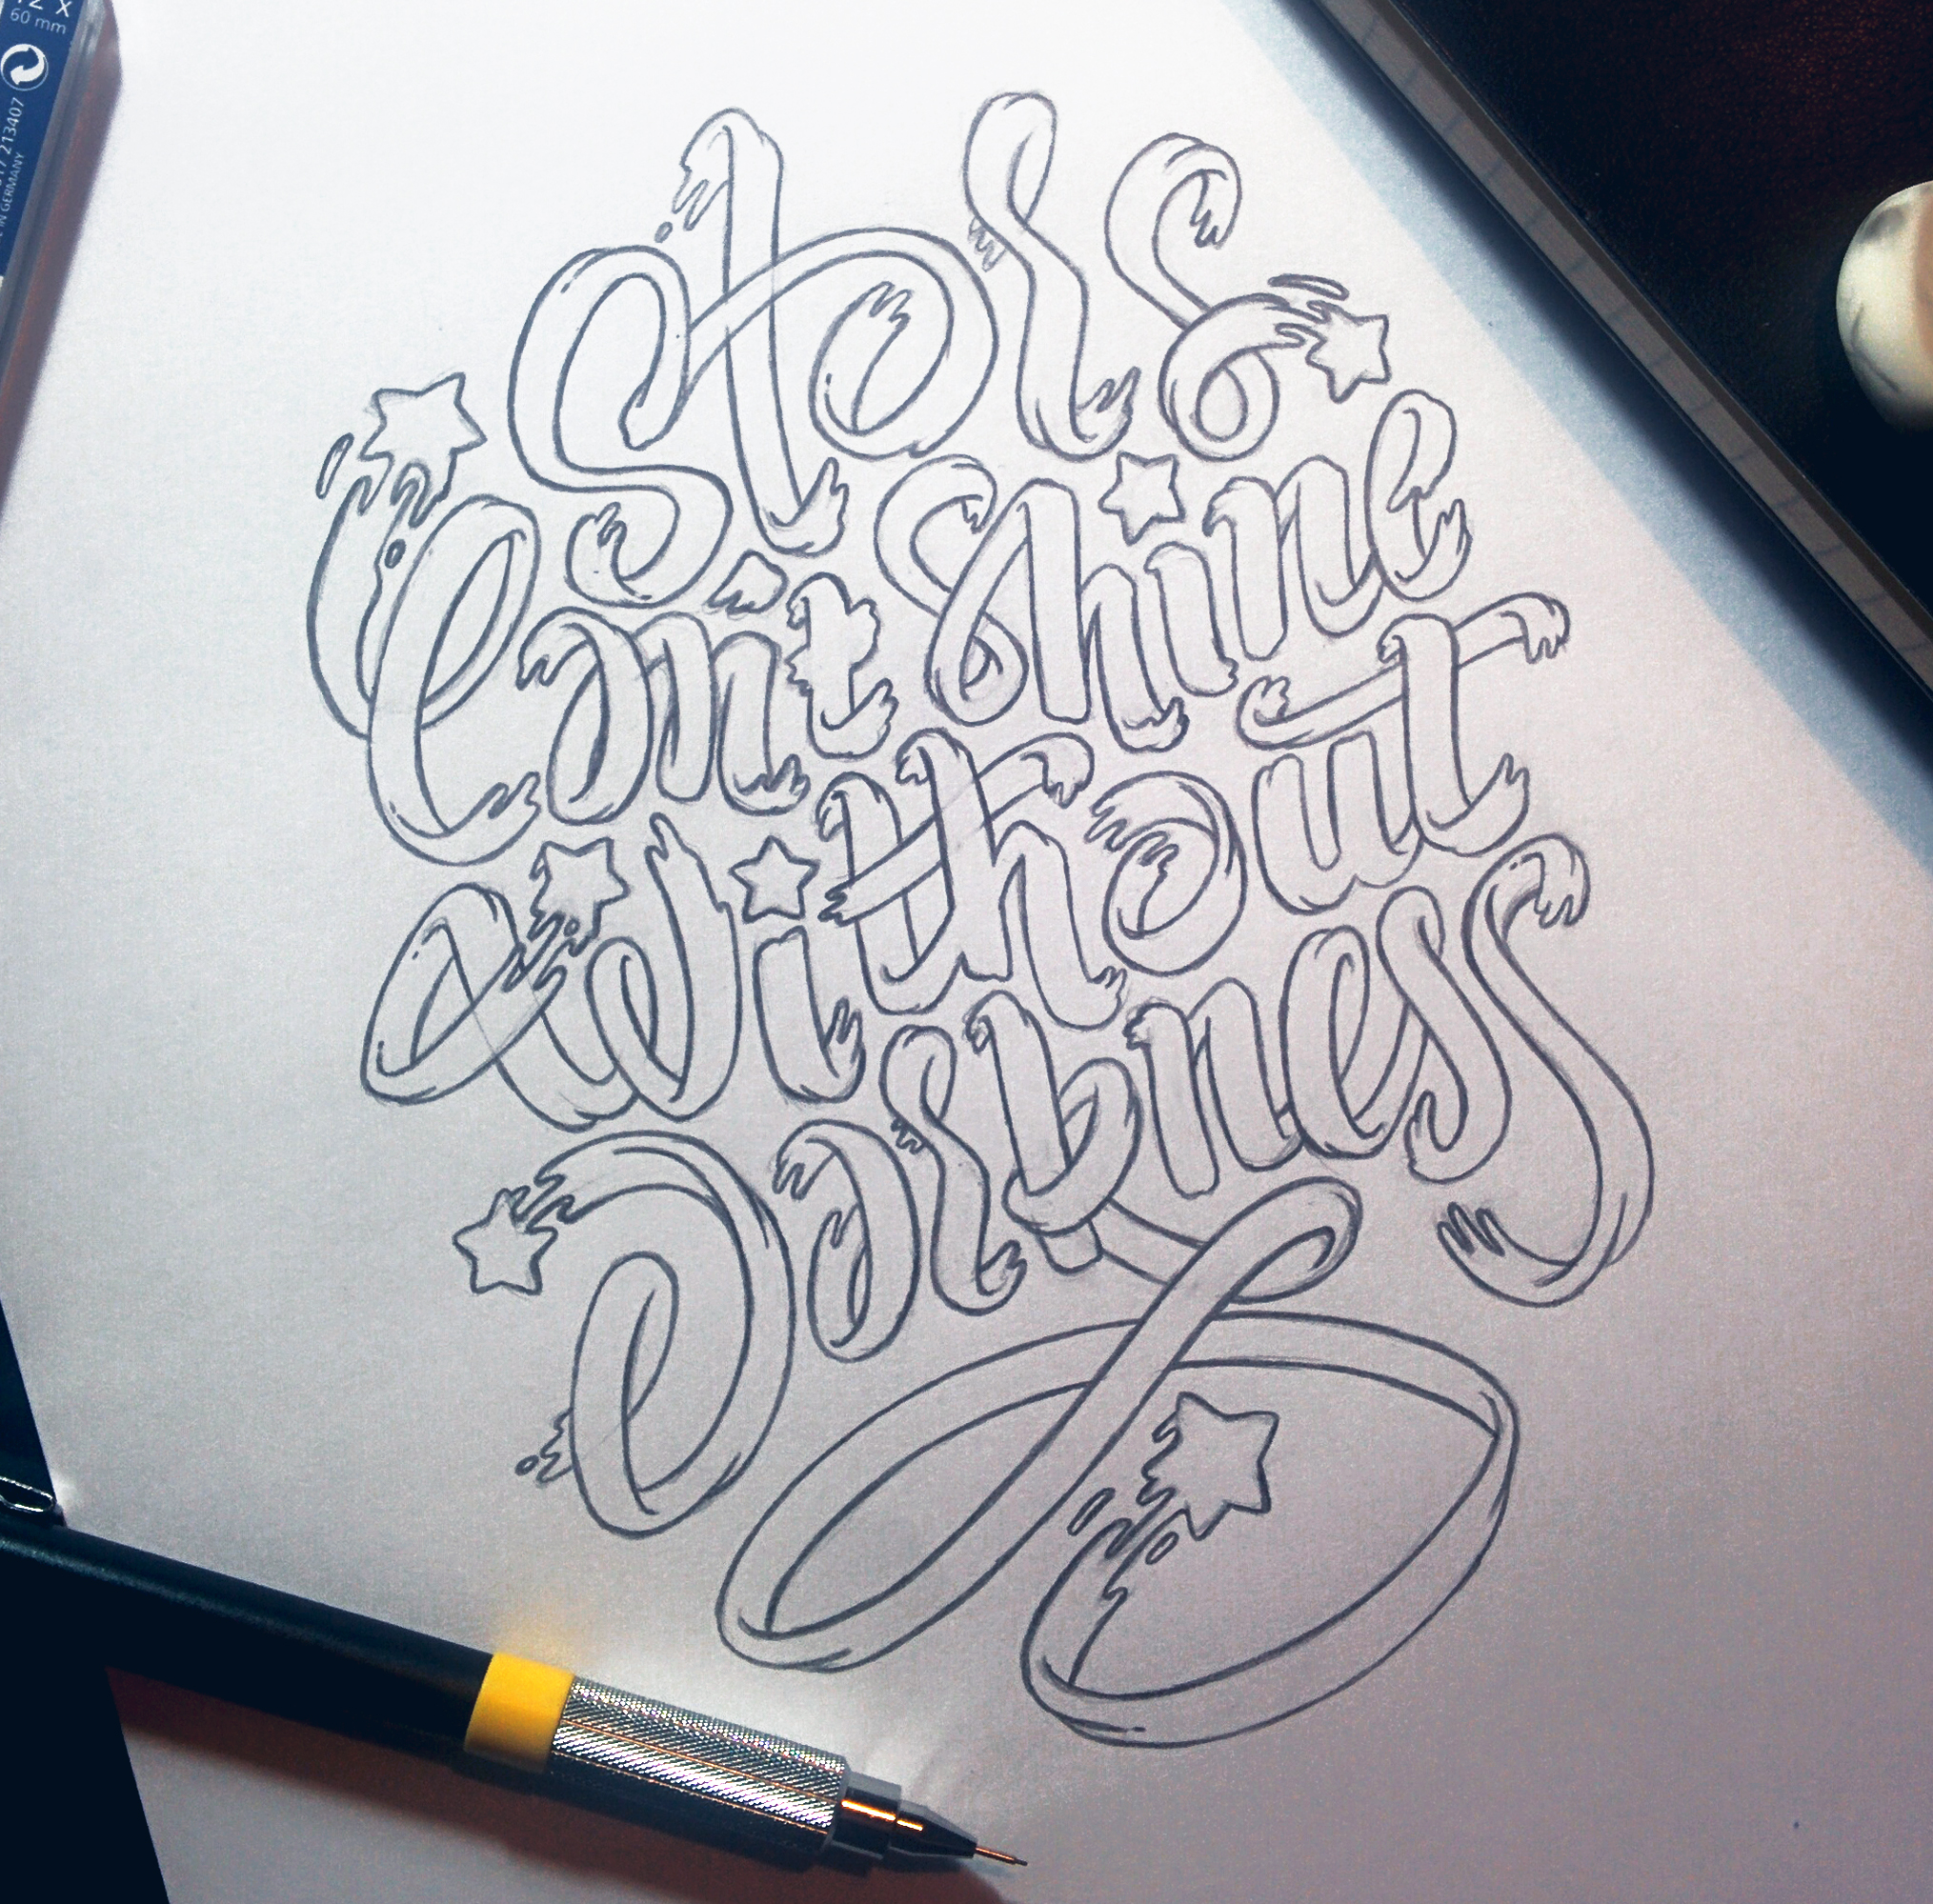 2 X
60 mm
213407
IN GERMANY
Stars
Can't Shine
Without
Darkness